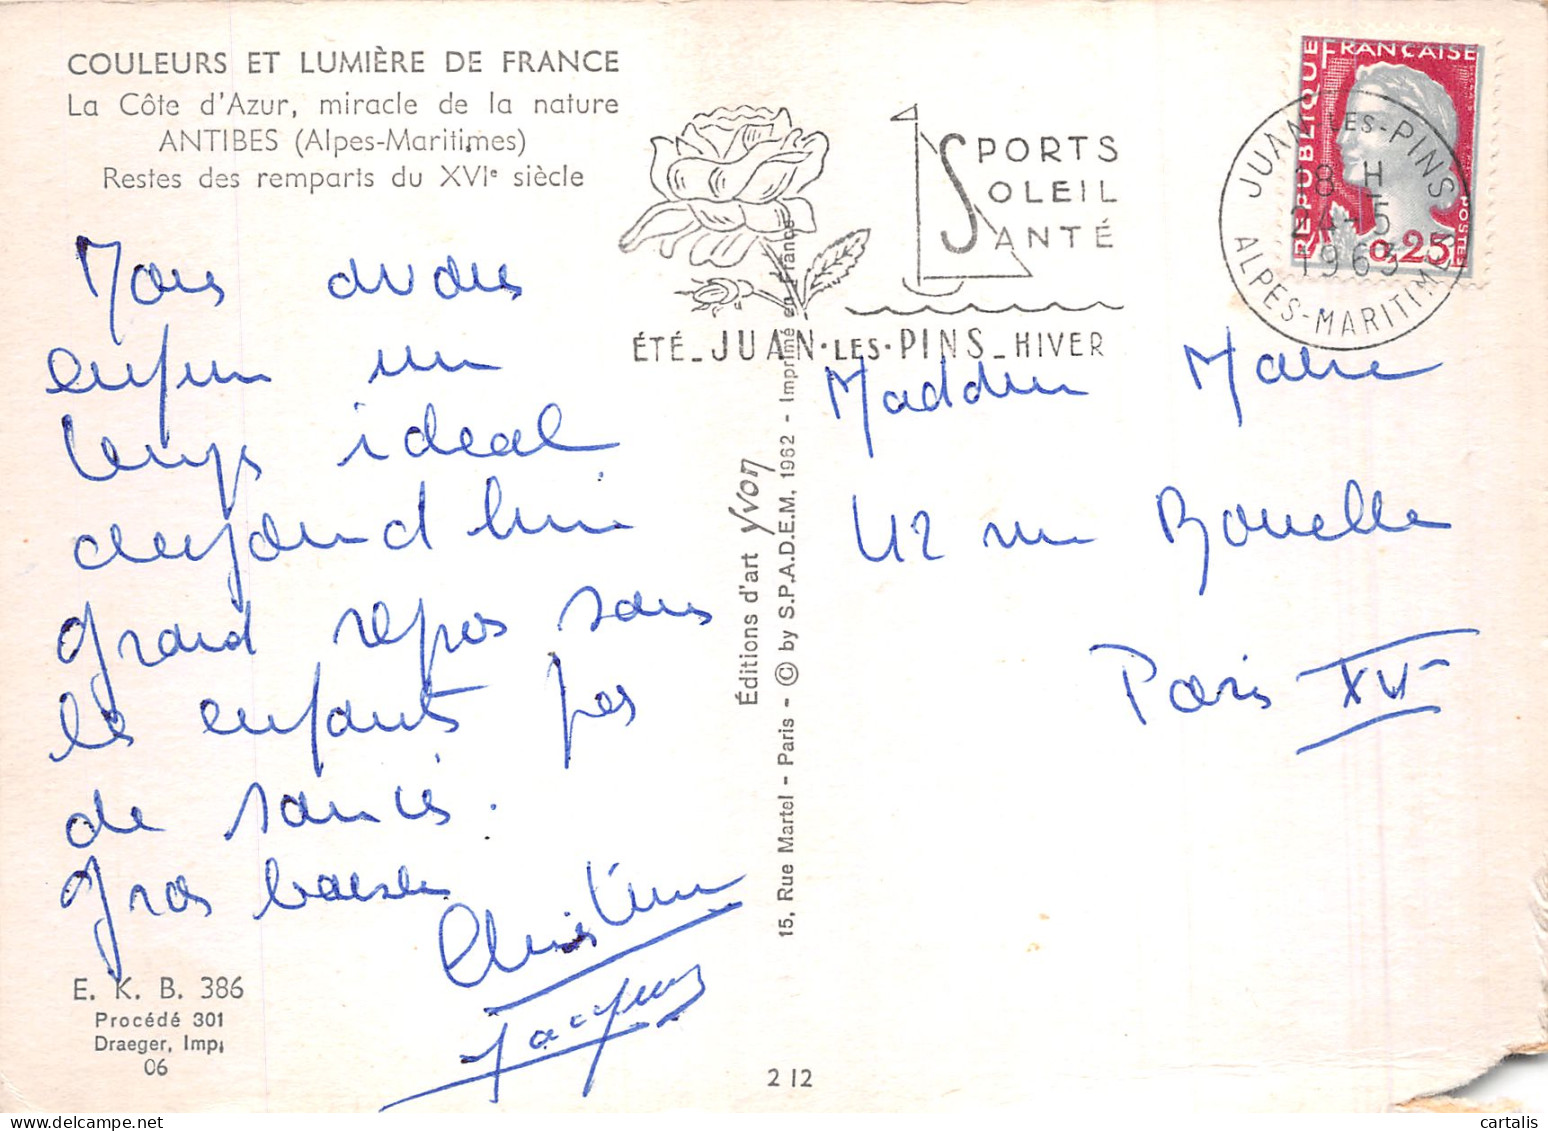 COULEURS ET LUMIÈRE DE FRANCE
La Côte d'Azur, miracle de la nature
ANTIBES (Alpes-Maritimes)
Restes des remparts du XVIe siècle
SPORTS
SOLEIL
SANTÉ
ÉTÉ_JUAN·LES·PINS_HIVER
RÉPUBLIQUE FRANÇAISE
POSTES
0,25F
JUAN-LES-PINS
18 H
24-5
1963
ALPES-MARITIMES
Nous avons
enfin un
temps idéal
aujourd'hui
grand repos sans
les enfants pas
de soucis.
Gros baisers
Christiane
Jacques
42 rue Rouelle
Paris XVe
Éditions d'art Yvon
15, Rue Martel - Paris - © by S.P.A.D.E.M. 1962 - Imprimé en France
E. K. B. 386
Procédé 301
Draeger, Imp.
06
2 12
www.delcampe.net
cartalis